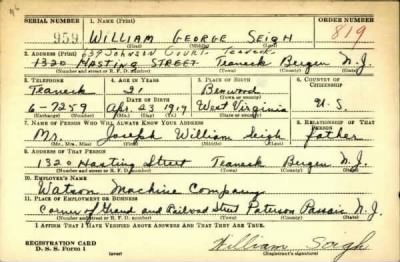 SERIAL NUMBER 1. NAME (Print) ORDER NUMBER
959 WILLIAM GEORGE SEIGH 819
(First) (Middle) (Last)
639 Johnson Court. Teaneck
2. ADDRESS (Print)
1320 HASTING STREET Teaneck Bergen N.J.
(Number and street or R. F. D. number) (Town) (County) (State)
3. TELEPHONE 4. AGE IN YEARS 5. PLACE OF BIRTH 6. COUNTRY OF CITIZENSHIP
Teaneck 21 Benwood
DATE OF BIRTH (Town or county)
6-7259 Apr. 23 1919 West Virginia U.S.
(Exchange) (Number) (Mo.) (Day) (Yr.) (State or country)
7. NAME OF PERSON WHO WILL ALWAYS KNOW YOUR ADDRESS 8. RELATIONSHIP OF THAT PERSON
Mr. Joseph William Seigh father
(Mr., Mrs., Miss) (First) (Middle) (Last)
9. ADDRESS OF THAT PERSON
1320 Hasting Street Teaneck Bergen N.J.
(Number and street or R. F. D. number) (Town) (County) (State)
10. EMPLOYER'S NAME
Watson Machine Company
11. PLACE OF EMPLOYMENT OR BUSINESS
Corner of Grand and Railroad Street Paterson Passaic N.J.
(Number and street or R. F. D. number) (Town) (County) (State)
I AFFIRM THAT I HAVE VERIFIED ABOVE ANSWERS AND THAT THEY ARE TRUE.
REGISTRATION CARD
D. S. S. Form 1 (over) William Seigh
(Registrant's signature)